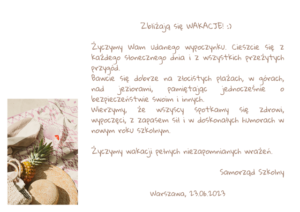 Zbliżają się WAKACJE! :)
Życzymy Wam udanego wypoczynku. Cieszcie się z
każdego słonecznego dnia i z wszystkich przeżytych
przygód.
Bawcie się dobrze na złocistych plażach, w górach,
nad jeziorami, pamiętając jednocześnie o
bezpieczeństwie swoim i innych.
Wierzymy, że wszyscy spotkamy się zdrowi,
wypoczęci, z zapasem sił i w doskonałych humorach w
nowym roku szkolnym.
Życzymy wakacji pełnych niezapomnianych wrażeń.
Samorząd Szkolny
Warszawa, 23.06.2023